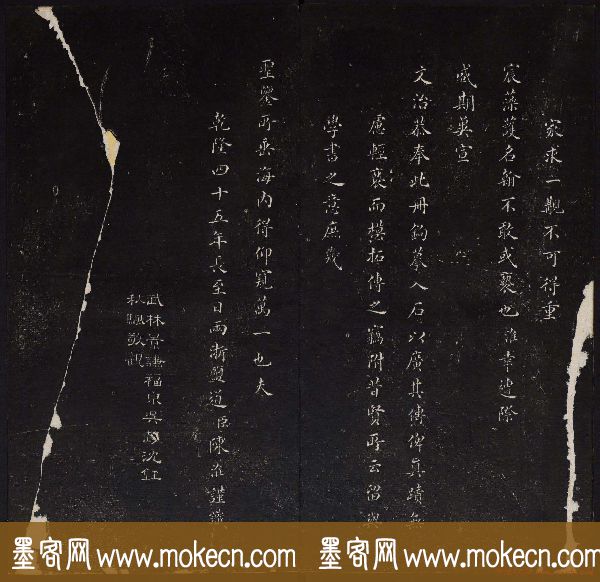 家求一觀不可得重
宸藻護名翰不敢或褻也淮幸遭際
咸期英宣
文治恭奉此冊鉤摹入石以廣其傳俾真蹟無
慮輕褻而模拓傳之竊附昔賢所云留與
學書之意庶幾
聖鑒所垂海內得仰窺萬一也夫
乾隆四十五年長至日兩浙鹽道臣陳淮謹識
武林 謙福泉吳 沈
秋 敬觀
墨客网 www.mokecn.com 墨客网 www.mokecn.com